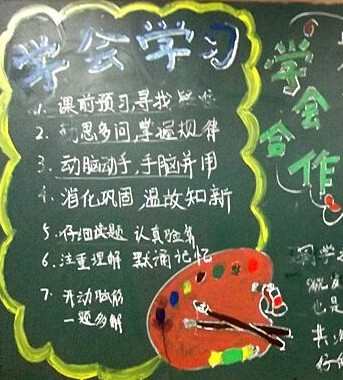 学会学习
1. 课前预习,寻找疑难
2. 勤思多问,掌握规律
3. 动脑动手,手脑并用
4. 消化巩固 温故知新
5. 仔细读题 认真验算
6. 注重理解 默诵记忆
7. 开动脑筋
一题多解
学会
合作
同学
也是